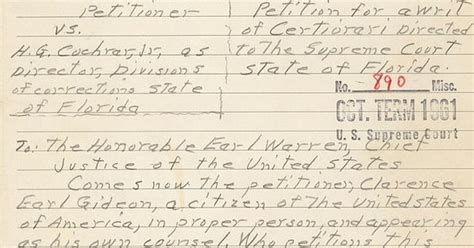 Petitioner
vs.
H.G. Cochran, Jr., as
Director, Divisions
of corrections State
of Florida
Petition for a Writ
of Certiorari Directed
to The Supreme Court
State of Florida.
No. 890 Misc.
OCT. TERM 1961
U. S. Supreme Court
To: The Honorable Earl Warren, Chief
Justice of the United States
Comes now the petitioner, Clarence
Earl Gideon, a citizen of The United states
of America, in proper person, and appearing
as his own counsel. Who petitions this